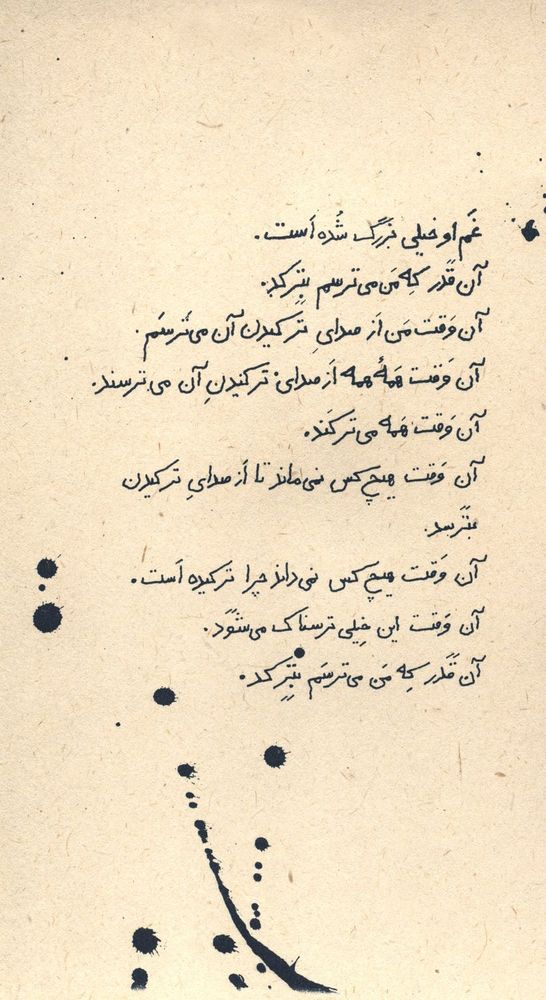 غَم او خیلی بزرگ شُده اَست.
آن قَدر کِه مَن می‌ترسم بِتِرکد.
آن وَقت مَن اَز صدایِ تَرکیدن آن می‌تَرسَم.
آن وَقت هَمهٔ همه اَز صدایِ ترکیدنِ آن می‌ترسند.
آن وَقت هَمه می‌ترکَند.
آن وَقت هیچ‌کس نمی‌ماند تا اَز صدایِ ترکیدن
بتَرسد.
آن وَقت هیچ‌کس نمی‌داند چرا ترکیده اَست.
آن وَقت این خِیلی ترسناک می‌شَوَد.
آن قَدَر کِه مَن می‌ترسَم بِتِرکد.